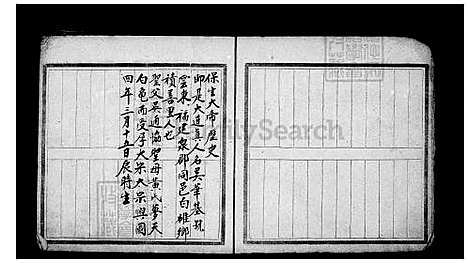 保生大帝歷史
即是大道真人名吳華基號
雲東福建泉郡同邑白礁鄉
積善里人也
聖父吳通協聖母黃氏夢天
白龜而受孕大宋太宗興國
四年三月十五日辰時生
FamilySearch